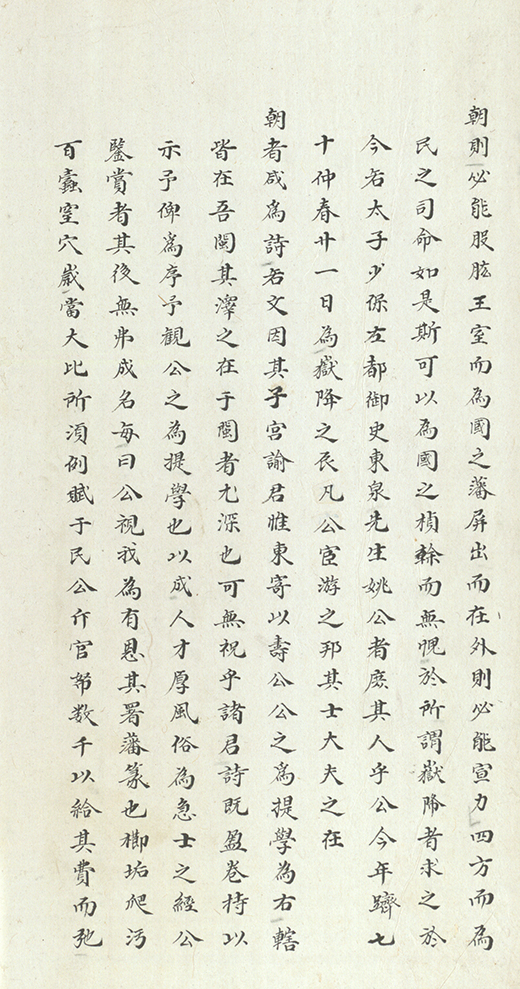 朝則必能股肱王室而為國之藩屏出而在外則必能宣力四方而為
民之司命如是斯可以為國之楨榦而無愧於所謂嶽降者求之於
今若太子少保左都御史東泉先生姚公者庶其人乎公今年躋七
十仲春廿一日為嶽降之辰凡公宦游之邦其士大夫之在
朝者咸為詩若文因其子宮諭君惟東寄以壽公公之為提學為右轄
皆在吾閩其澤之在于閩者尤深也可無祝乎諸君詩既盈卷持以
示予俾為序予觀公之為提學也以成人才厚風俗為急士之經公
鑒賞者其後無弗成名每曰公視我為有恩其署藩篆也櫛垢爬汚
百蠹窒穴歲當大比所湏例賦于民公斥官帑数千以給其費而弛